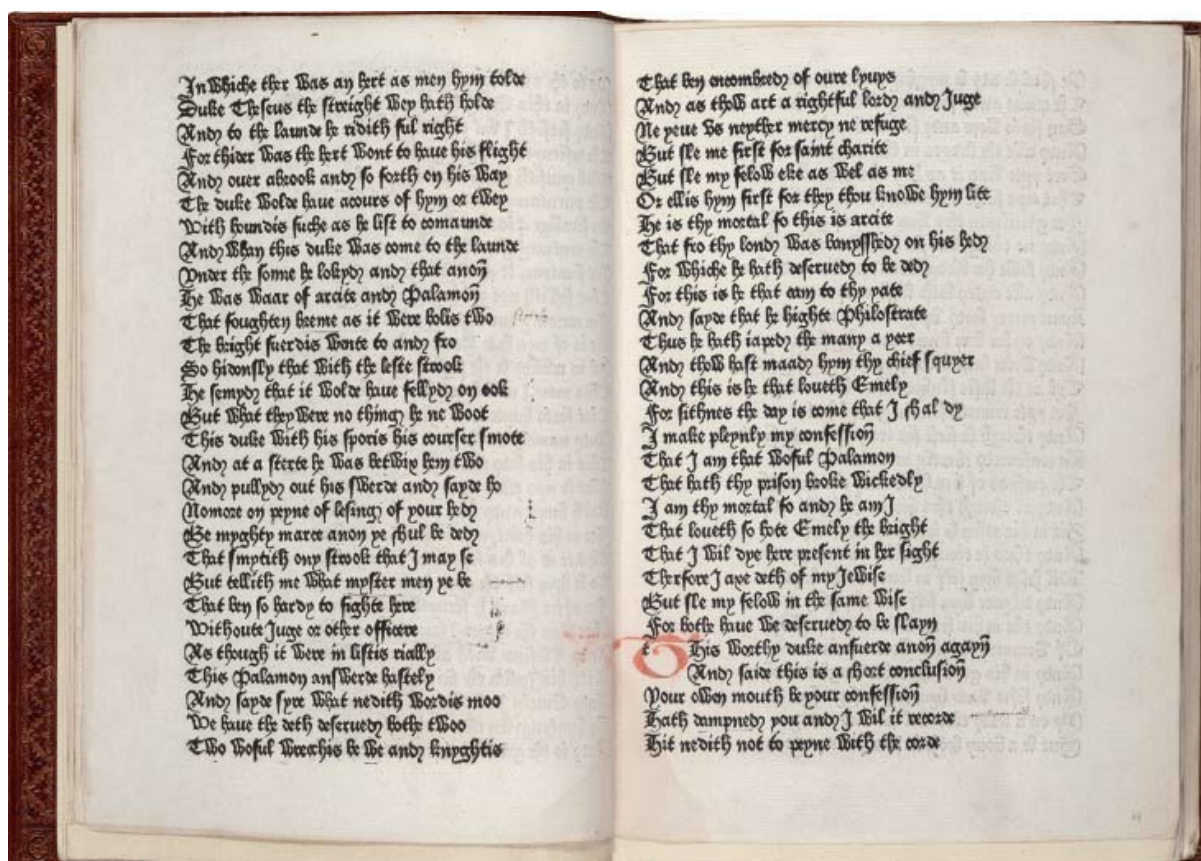 In whiche ther was an hert as men hym tolde
Duke Theseus the streight wey hath holde
And to the launde he ridith ful right
For thider was the hert wont to have his flight
And over abrook and so forth on his way
The duke wolde have acours of hym or twey
With houndis suche as he list to comaunde
And whan this duke was come to the launde
Vnder the sonne he lokyd and that anon̄
He was waar of arcite and Palamon̄
That foughten breme as it were bolis two
The bright suerdis wente to and fro
So hidously that with the leste strook
He semyd that it wolde have fellyd on ook
But what they were no thing he ne woot
This duke with his sporis his courser smote
And at a sterte he was betwix hem two
And pullyd out his swerde and sayde ho
Nomore on peyne of lesing of your hed
Be myghty marce anon ye shul be ded
That smytith ony strook that I may se
But tellith me what myster men ye be
That ben so hardy to fighte here
Withoute Juge or other officere
As though it were in listis rially
This Palamon answerde hastely
And sayde syre what nedith wordis moo
We have the deth deserved bothe twoo
Two woful wrecchis be we and knyghtis
That ben encombred of oure lyuys
And as thow art a rightful lord and Juge
Ne yeue vs neyther mercy ne refuge
But sle me first for saint charite
But sle my felow eke as wel as me
Or ellis hym first for they thou knowe hym lite
He is thy mortal fo this is arcite
That fro thy lond was banysshed on his hed
For whiche he hath deserued to be ded
For this is he that cam to thy yate
And sayde that he highte Philostrate
Thus he hath iaped the many a yeer
And thow hast maad hym thy chief squyer
And this is he that loueth Emely
For sithnes the day is come that I shal dy
I make pleynly my confession̄
That I am that woful Palamon
That hath thy prison broke wickedly
I am thy mortal fo and he am I
That loueth so hote Emely the bright
That I wil dye here present in her sight
Therfore I axe deth of my Jewise
But sle my felow in the same wise
For bothe haue we deserued to be slayn
t This worthy duke ansuerde anon̄ agayn̄
And saide this is a short conclusion̄
Your owen mouth be your confession̄
Hath dampned you and I wil it recorde
Hit nedith not to peyne with the corde